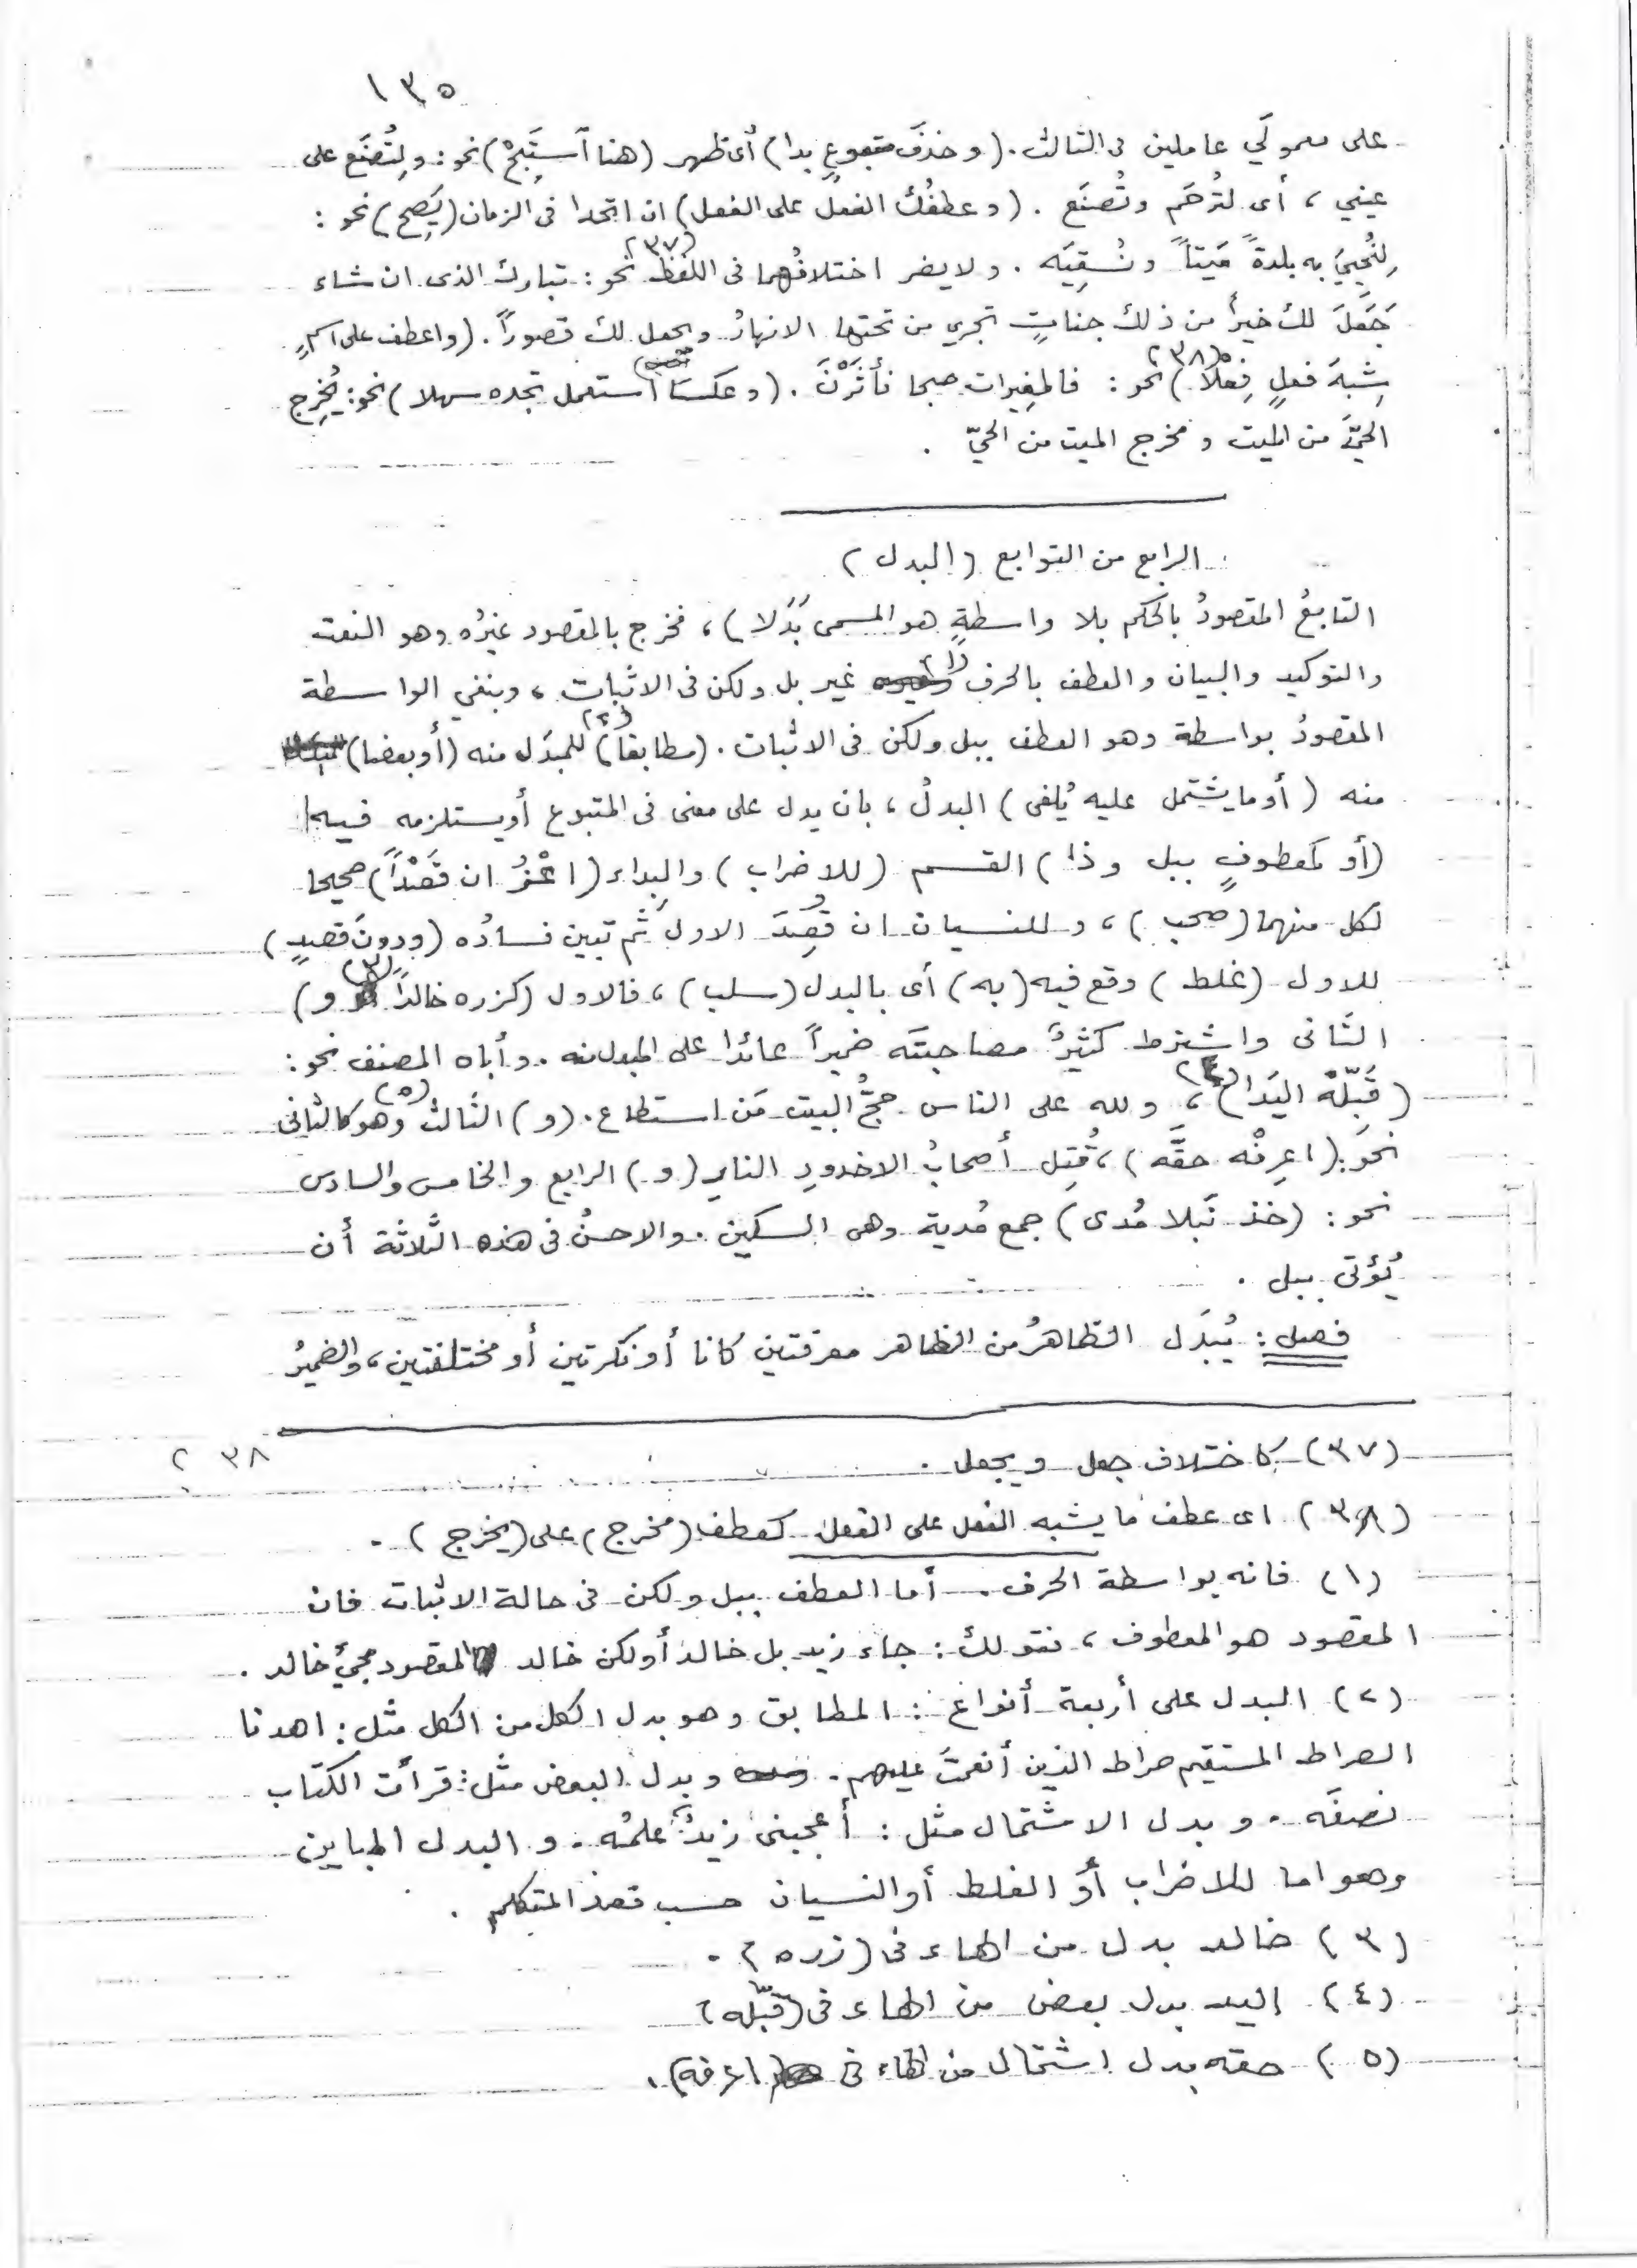 ١٣٥
على معمولَي عاملين فى الثالث . (وحذفَ متبوعٍ بدا) أى ظهر (هنا آستَبِحْ) نحو : ولِتُصنَع على
عيني ، أى لتُرحَم وتُصنَع . (وعطفُك الفعل على الفعل) ان اتحدا فى الزمان (يَصِح) نحو :
لِنُحيِيَ به بلدةً مَيتاً ونُسقِيَه . ولا يضر اختلافُهما فى اللفظ (٣٧) نحو : تبارك الذى ان شاء
جَعَلَ لك خيراً من ذلك جناتٍ تجري من تحتها الانهارُ ويجعل لك قصوراً . (واعطف على اسمٍ
شِبهَ فعلٍ فِعلاً) (٣٨) نحو : فالمغيرات صبحا فأثَرْنَ . (وعكسًا آستعمل تجده سهلا) نحو : يُخرِج
الحيَّ من الميت ومخرج الميت من الحيّ .
الرابع من التوابع (البدل)
التابعُ المقصودُ بالحكم بلا واسطةٍ هو المسمى بَدَلا) ، فخرج بالمقصود غيرُه وهو النعت
والتوكيد والبيان والعطف بالحرف (١) غير بل ولكن فى الاثبات ، وبنفي الواسطة
المقصودُ بواسطة وهو العطف ببل ولكن فى الاثبات . (مطابقاً) (٢) للمبدَل منه (أو بعضا)
منه (أو ما يشتمل عليه يُلفى) البدلُ ، بان يدل على معنى فى المتبوع أو يستلزمه فيه
(أو كمعطوفٍ ببل وذا) القسم (للاضراب) والبداء (اعْزُ ان قَصْداً) صحيحا
لكل منهما (صحب) ، وللنسيان ان قُصِدَ الاول ثم تبين فسادُه (ودونَ قصدٍ)
للاول (غلط) وقع فيه (به) أى بالبدل (سلب) ، فالاول (كزره خالداً (٣) و)
الثانى واشترط كثيرٌ مصاحبتَه ضميراً عائدا على المبدل منه . وأباه المصنف نحو :
(قَبِّلْهُ اليَدا) (٤) ، ولله على الناس حجُّ البيت مَن استطاع . (و) الثالث (٥) وهو كالثانى
نحو : (اعرِفْه حقَّه) ، قُتِل أصحابُ الاخدودِ النارِ (و) الرابع والخامس والسادس
نحو : (خذ نَبلا مُدى) جمع مُدية وهى السكين . والاحسنُ فى هذه الثلاثة أن
يُؤتى ببل .
فصل : يُبدَل الظاهرُ من الظاهر معرفتين كانا أو نكرتين أو مختلفتين ، والضميرُ
(٣٧) كاختلاف جعل ويجعل . ٢٣٨
(٣٨) اى عطف ما يشبه الفعل على الفعل كعطف (مخرج) على (يخرج) .
(١) فانه بواسطة الحرف . أما العطف ببل ولكن فى حالة الاثبات فان
المقصود هو المعطوف ، فقولك : جاء زيد بل خالد أو لكن خالد المقصود مجئ خالد .
(٢) البدل على أربعة أنواع : المطابق وهو بدل الكل من الكل مثل : اهدنا
الصراط المستقيم صراط الذين أنعمتَ عليهم . وبدل البعض مثل : قرأت الكتاب
نصفَه . وبدل الاشتمال مثل : أعجبنى زيدٌ علمُه . والبدل المباين
وهو اما للاضراب أو الغلط أو النسيان حسب قصد المتكلم .
(٣) خالد بدل من الهاء فى (زره) .
(٤) اليد بدل بعض من الهاء فى (قبّله)
(٥) حقه بدل اشتمال من الهاء فى (اعرفه) .